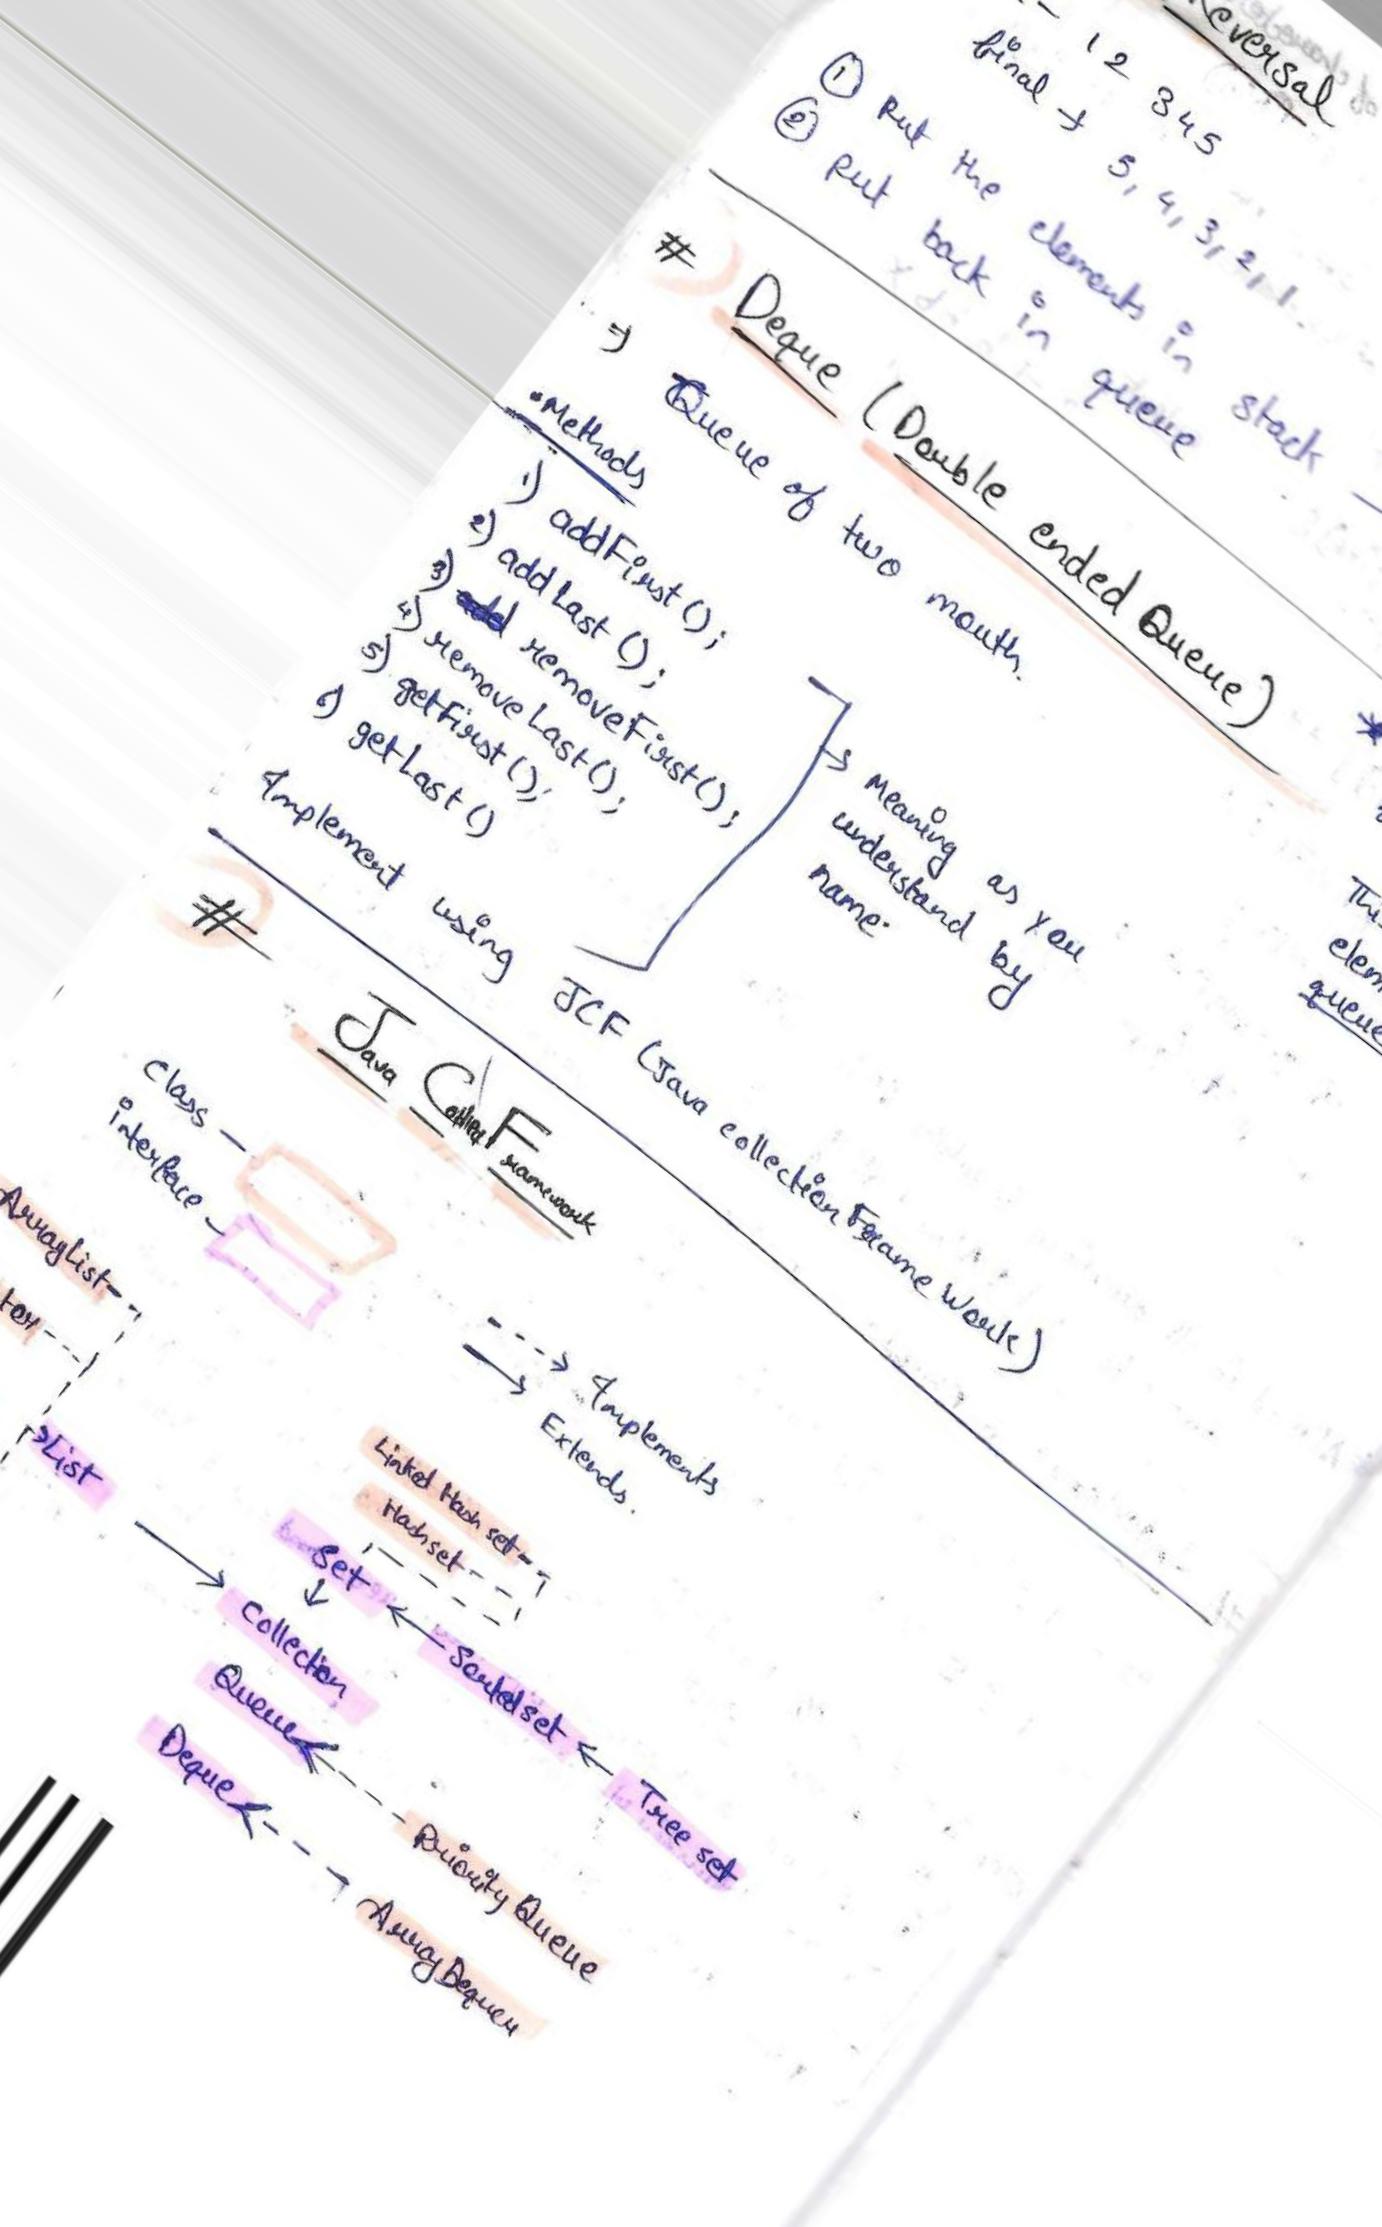 Reversal
1 2 3 4 5
final → 5, 4, 3, 2, 1.
① Put the elements in stack
② Put back in queue
# Deque (Double ended Queue)
⇒ Queue of two mouth.
• Methods
1) addFirst();
2) addLast();
3) removeFirst();
4) removeLast();
5) getFirst();
6) getLast()
→ Meaning as you
understand by
name.
Implement using JCF (Java collection Frame Work)
# Java Framework
Class –
interface –
--→ Implements
→ Extends.
ArrayList
→List
Linked Hash set
Hash set
Set
Collection
Sorted set
Tree set
Queue
Priority Queue
Deque
queue